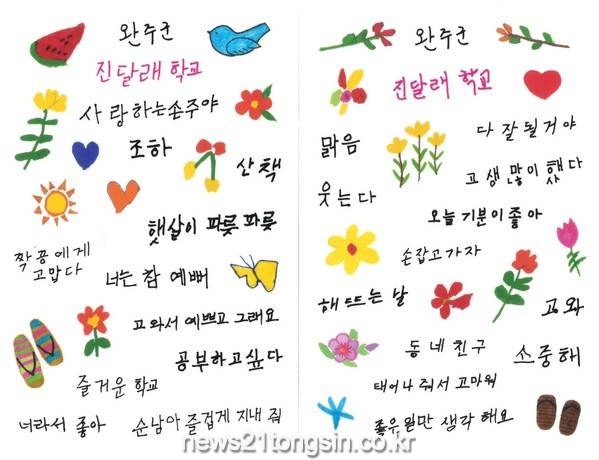 완주군
진달래 학교
사랑하는손주야
조하
산책
햇살이 파릇파릇
짝꿍에게
고맙다
너는 참 예뻐
고와서 예쁘고 그래요
공부하고싶다
즐거운 학교
너라서 좋아
순남아 즐겁게 지내 줘
완주군
진달래 학교
맑음
다 잘될거야
고생 많이 했다
웃는다
오늘 기분이좋아
손잡고가자
해뜨는 날
고와
동네친구
소중해
태어나 줘서 고마워
좋우일만 생각 해요
news21tongsin.co.kr